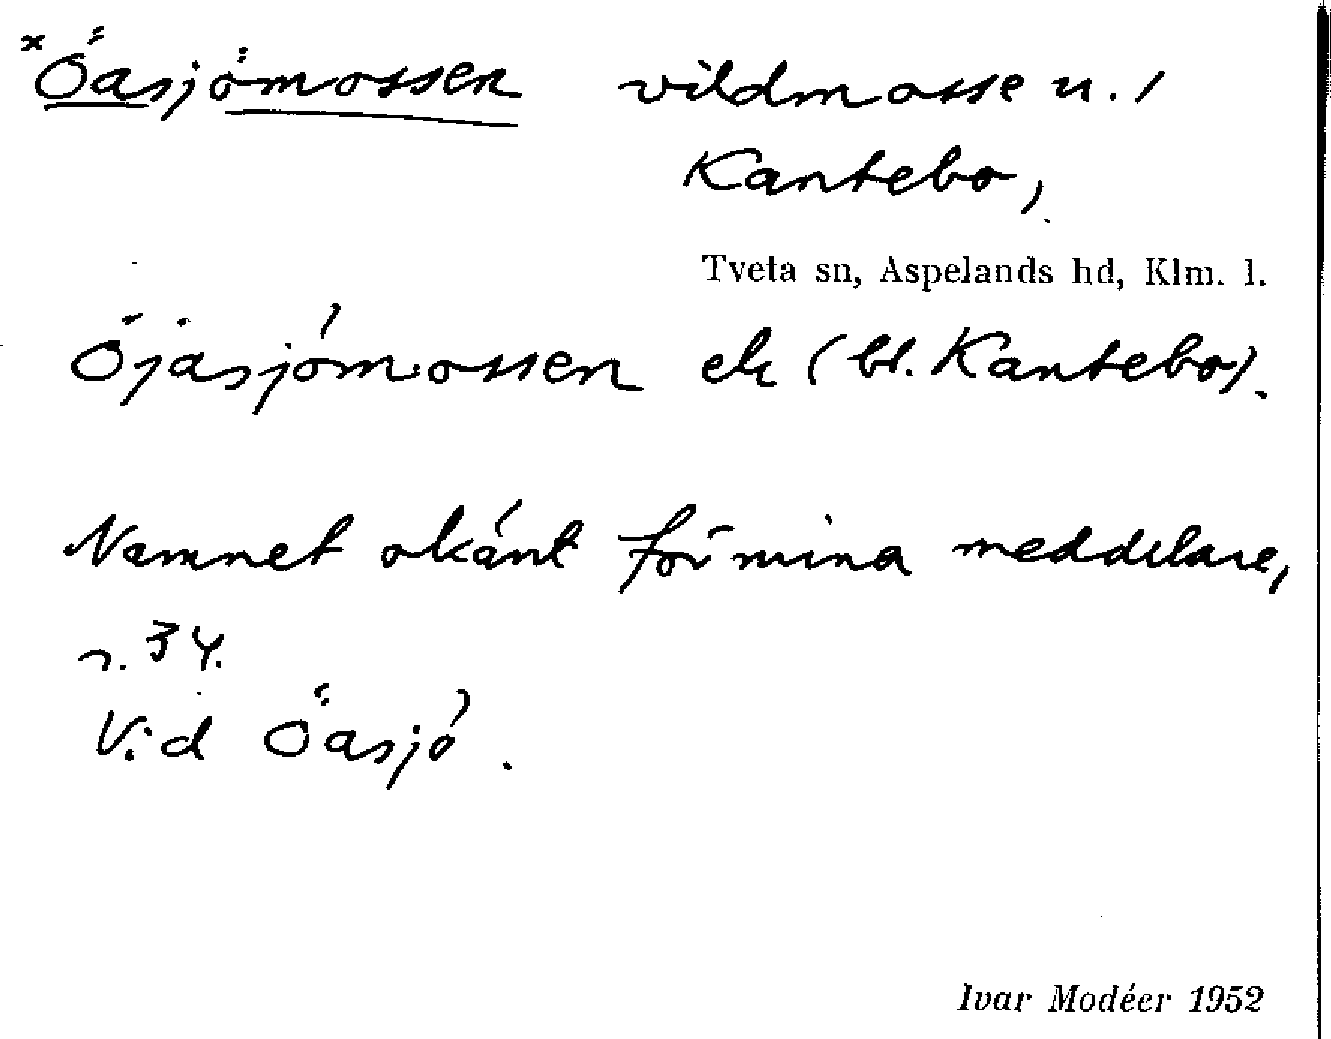 x Öasjömossen vildmosse u. /
Kantebo,
Tveta sn, Aspelands hd, Klm. l.
Öjasjömossen ek (bl. Kantebo).
Namnet okänt för mina meddelare,
r. 34.
Vid Öasjö.
Ivar Modéer 1952